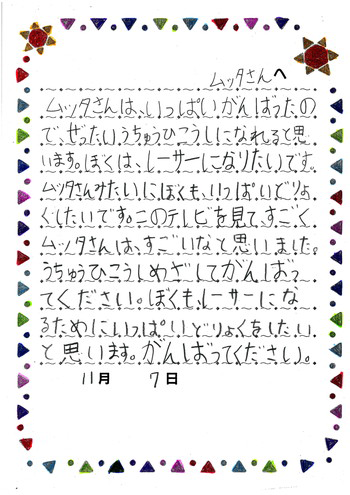 ムッタさんへ
ムッタさんは、いっぱいがんばったの
で、ぜったいうちゅうひこうしになれると思
います。ぼくは、レーサーになりたいです。
ムッタさんみたいにぼくも、いっぱいどりょ
くしたいです。このテレビを見て、すごく
ムッタさんは、すごいなと思いました。
うちゅうひこうしめざしてがんばっ
てください。ぼくも、レーサーにな
るためにいっぱいどりょくをしたい
と思います。がんばってください。
11月 7日